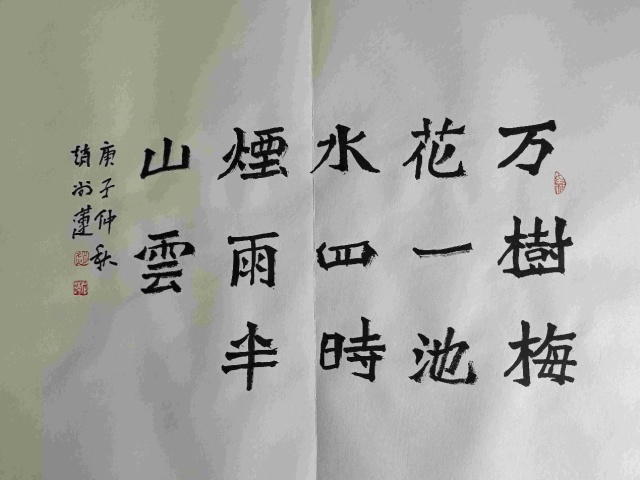 万樹梅
花一池
水四時
煙雨半
山雲
庚子仲秋
趙州蓮